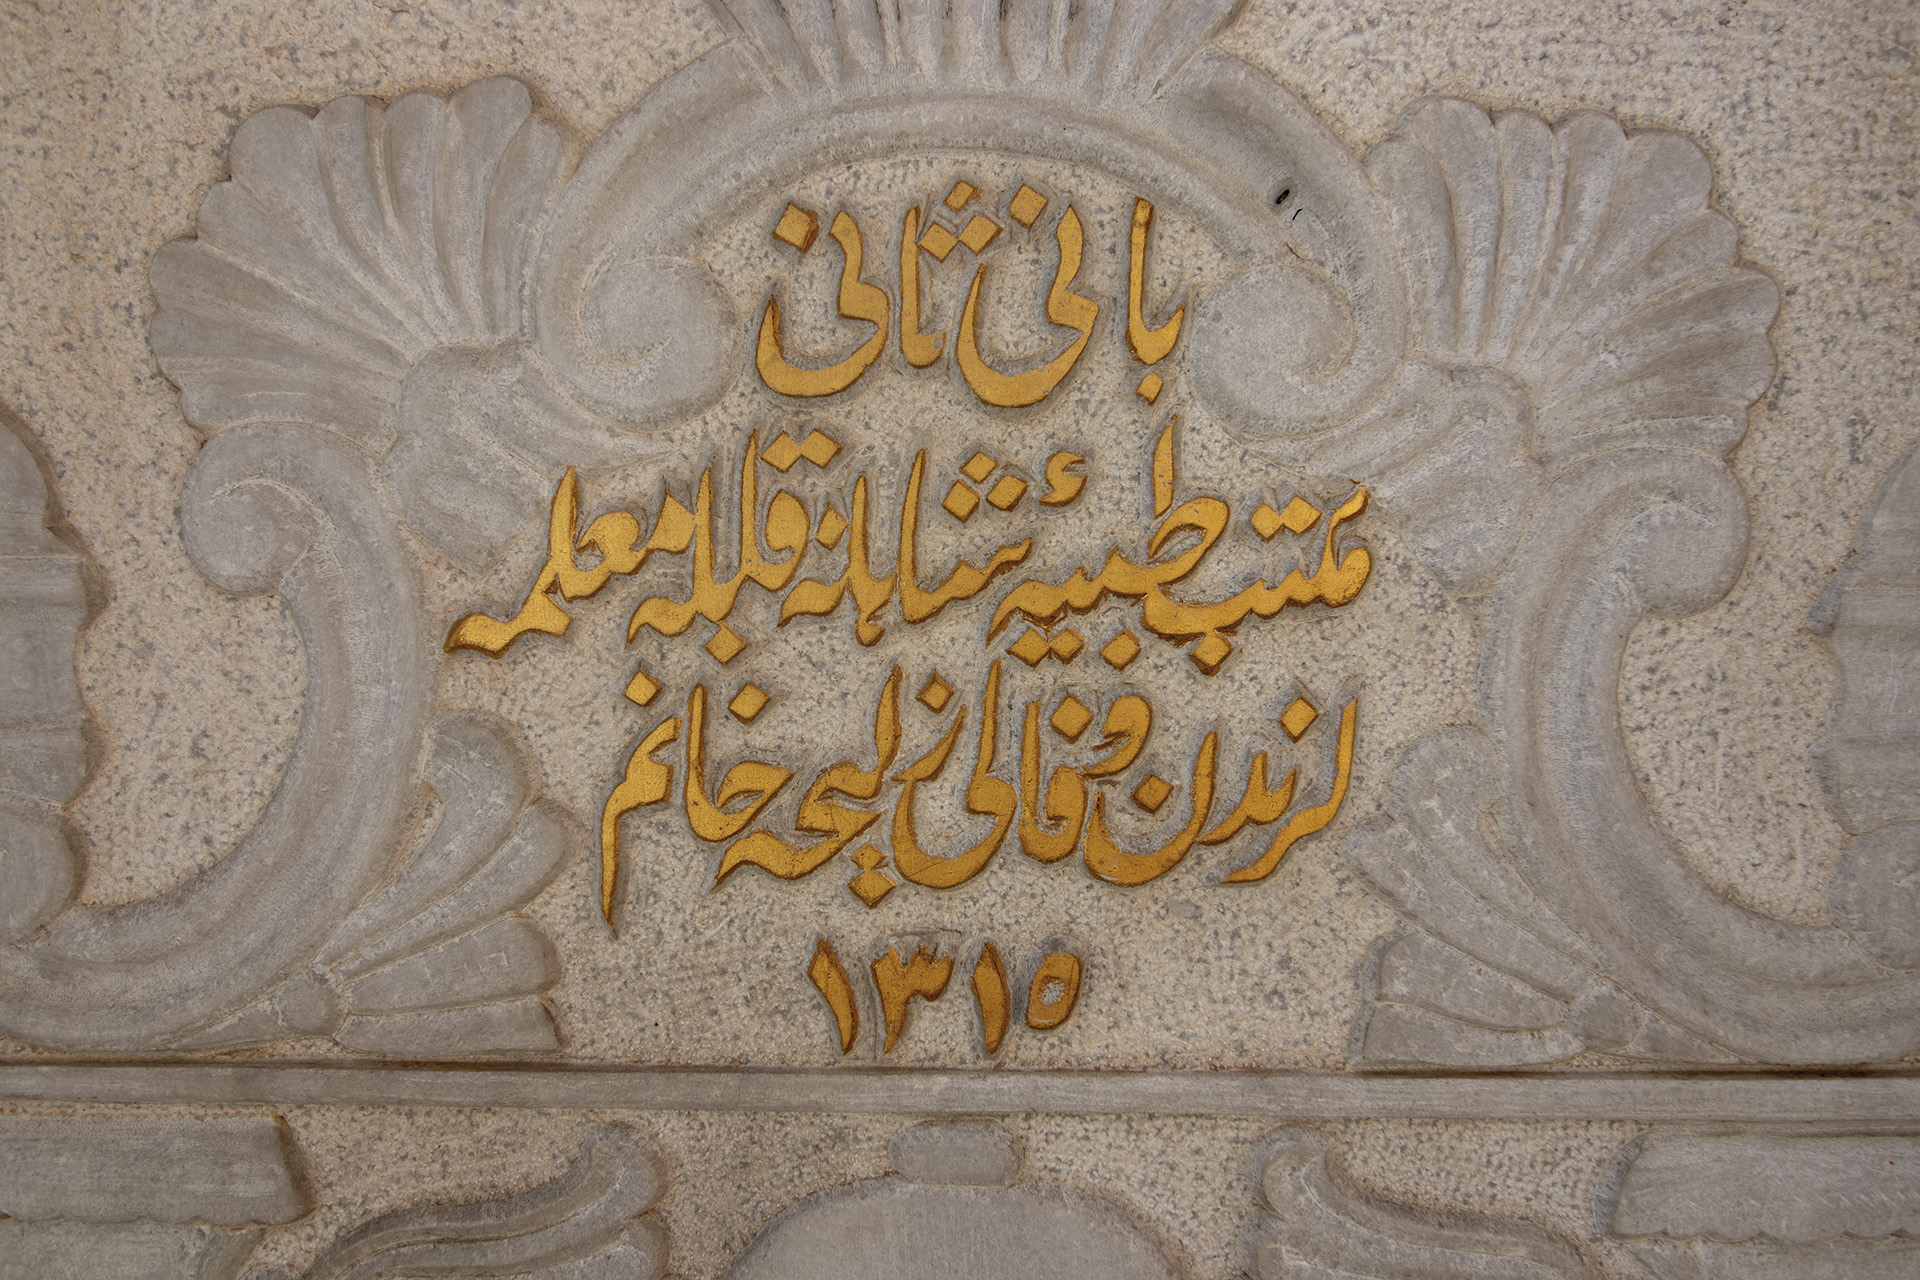 بانی ثانی
مكتب طبیهٔ شاهانه قبله معلمه
لرندن وفالی زلیجه خانم
١٣١٥